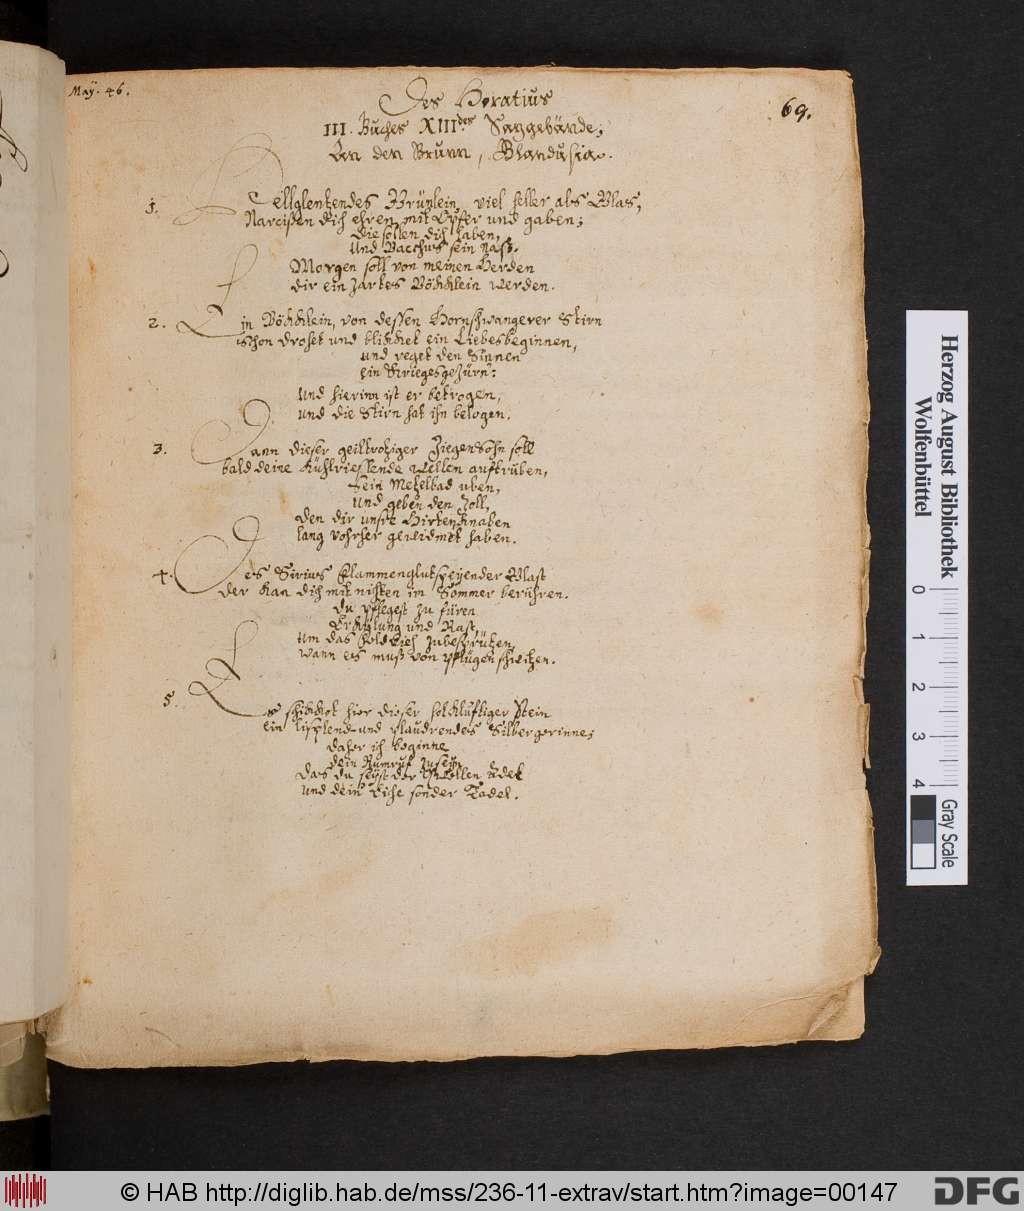 Maÿ. 46.
69.
Des Horatius
III. Buches XIII.des Sanggebände;
An den Brunn, Blandusia.
1. Hellglentzendes Brünlein, viel heller als Glas,
Narcißen dich ehren mit Opfer und gaben;
die sollen dich haben,
Und Bacchus sein naß.
Morgen soll von meinen Herden
dir ein zartes Bökklein werden.
2. Ein Bökklein, von dessen Hornschwangerer Stirn
schon drohet und blikket ein Liebesbeginnen,
und reget den Sinnen
ein Kriegesgezürn:
Und hierinn ist er betrogen,
und die Stirn hat ihn belogen.
3. Dann dieser geiltrotziger Ziegensohn soll
bald deine Kühlriesslende Wellen auftrüben,
Sein Metzelbad üben,
Und geben den Zoll,
den dir unsre Hirtenknaben
lang vohrher gewidmet haben.
4. Des Sirius Flammenglutspeyender Glast
der kan dich mit nichten im Sommer berühren.
du pflegest zu füren
Erkühlung und Rast,
Um das Feld Vieh zubesprützen,
wann es muß von pflügen schwitzen.
5. Es schikket hier dieser holkluftiger Stein
ein lispelend- und plaudrendes Silbergerinne;
daher ich beginne
dein Rumruf zu seyn,
Das du seyst der Quellen Adel
und dein Eiche sonder Tadel.
Herzog August Bibliothek
Wolfenbüttel
0 1 2 3 4
Gray Scale
© HAB http://diglib.hab.de/mss/236-11-extrav/start.htm?image=00147
DFG